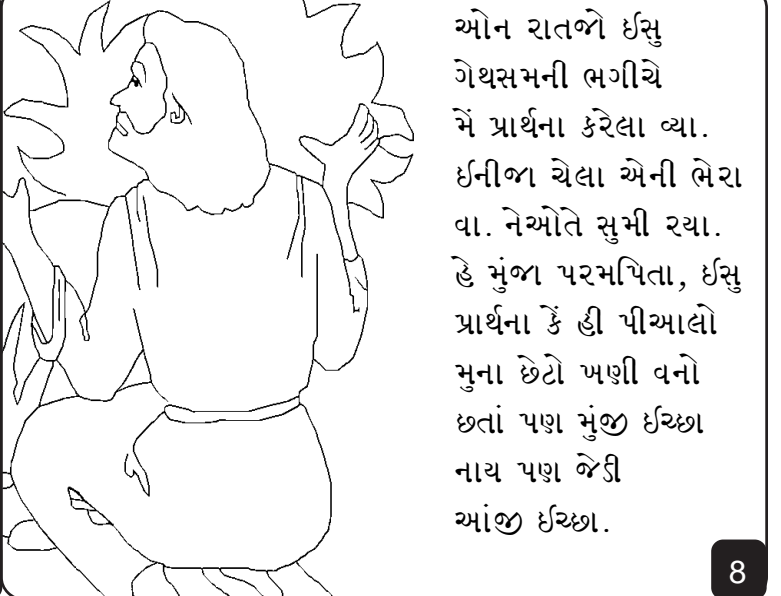 ઓન રાતજો ઈસુ
ગેથસમની ભગીચે
મેં પ્રાર્થના કરેલા વ્યા.
ઈનીજા ચેલા એની ભેરા
વા. નેઓતે સુમી રયા.
હે મુંજા પરમપિતા, ઈસુ
પ્રાર્થના કેં હી પીઆલો
મુના છેટો ખણી વનો
છતાં પણ મુંજી ઈચ્છા
નાય પણ જેડી
આંજી ઈચ્છા.
8